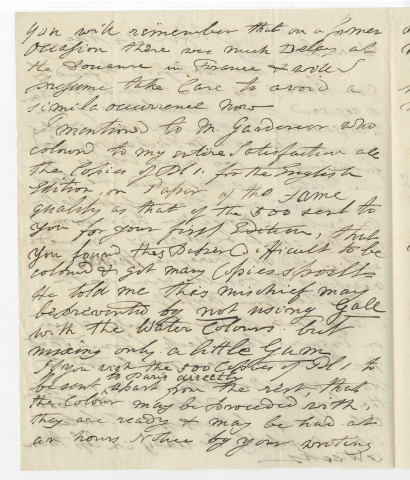 you will remember that on a former
occasion there was much Delay at
the Douane in France & will I
presume take Care to avoid a
simila occurrence now
I mentioned to M. Gardener who
colourd to my entire Satisfaction all
the Copies of Pl 1. for the English
Edition, on Paper of the same
quality as that of the 500 sent to
you for your first Edition, that
you found this Paper Difficult to be
colourd & got many Copies spoilt
He told me this mischief may
be prevented by not using Gall
with the Water Colours but
mixing only a little Gum
If you wish the 500 Copies of Pl. 1 to
be sent to Paris directly
apart from the rest, that
the Colourg may be proceeded with,
they are ready & may be had at
an hours Notice by your writing